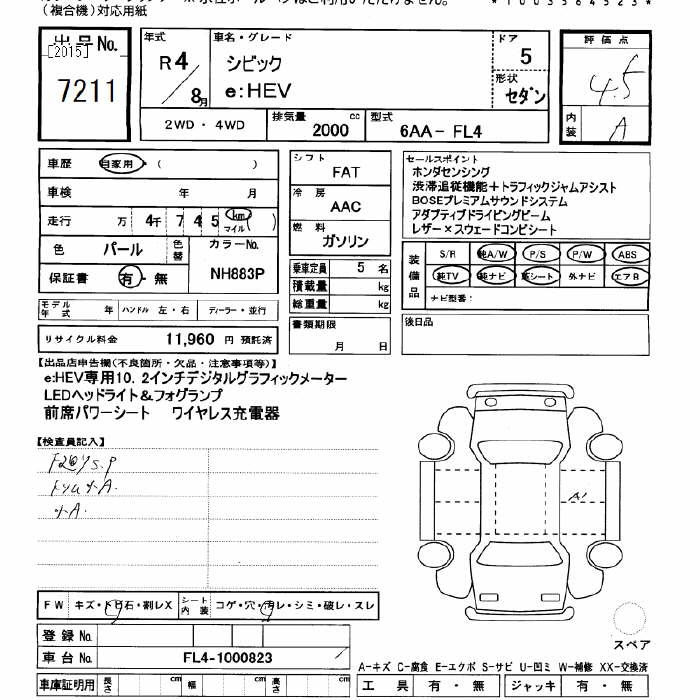 (複合機)対応用紙
*1003564523*
出品No.
[2015]
7211
年式
R4/8月
車名・グレード
シビック
e:HEV
ドア
5
形状
セダン
評価点
4.5
内装
A
2WD・4WD
排気量 2000 cc
型式 6AA-FL4
車歴 自家用・( )
車検 年 月
走行 万 4千 7 4 5 km マイル
色 パール 色替
カラーNo. NH883P
保証書 有・無
モデル年式 年 ハンドル 左・右 ディーラー・並行
リサイクル料金 11,960 円 預託済
シフト FAT
冷房 AAC
燃料 ガソリン
乗車定員 5 名
積載量 kg
総重量 kg
書類期限 月 日
セールスポイント
ホンダセンシング
渋滞追従機能+トラフィックジャムアシスト
BOSEプレミアムサウンドシステム
アダプティブドライビングビーム
レザー×スウェードコンビシート
装備品
S/R 純A/W P/S P/W ABS
純TV 純ナビ 革シート 外ナビ エアB
ナビ型番:
後日品
【出品店申告欄(不良箇所・欠品・注意事項等)】
e:HEV専用10.2インチデジタルグラフィックメーター
LEDヘッドライト&フォグランプ
前席パワーシート ワイヤレス充電器
【検査員記入】
A1
FW キズ・トビ石・割レX
シート内装 コゲ・穴・汚レ・シミ・破レ・スレ
登録No.
車台No. FL4-1000823
車庫証明用 長さ cm 幅 cm 高さ cm
スペア
A-キズ C-腐食 E-エクボ S-サビ U-凹ミ W-補修 XX-交換済
工具 有・無 ジャッキ 有・無